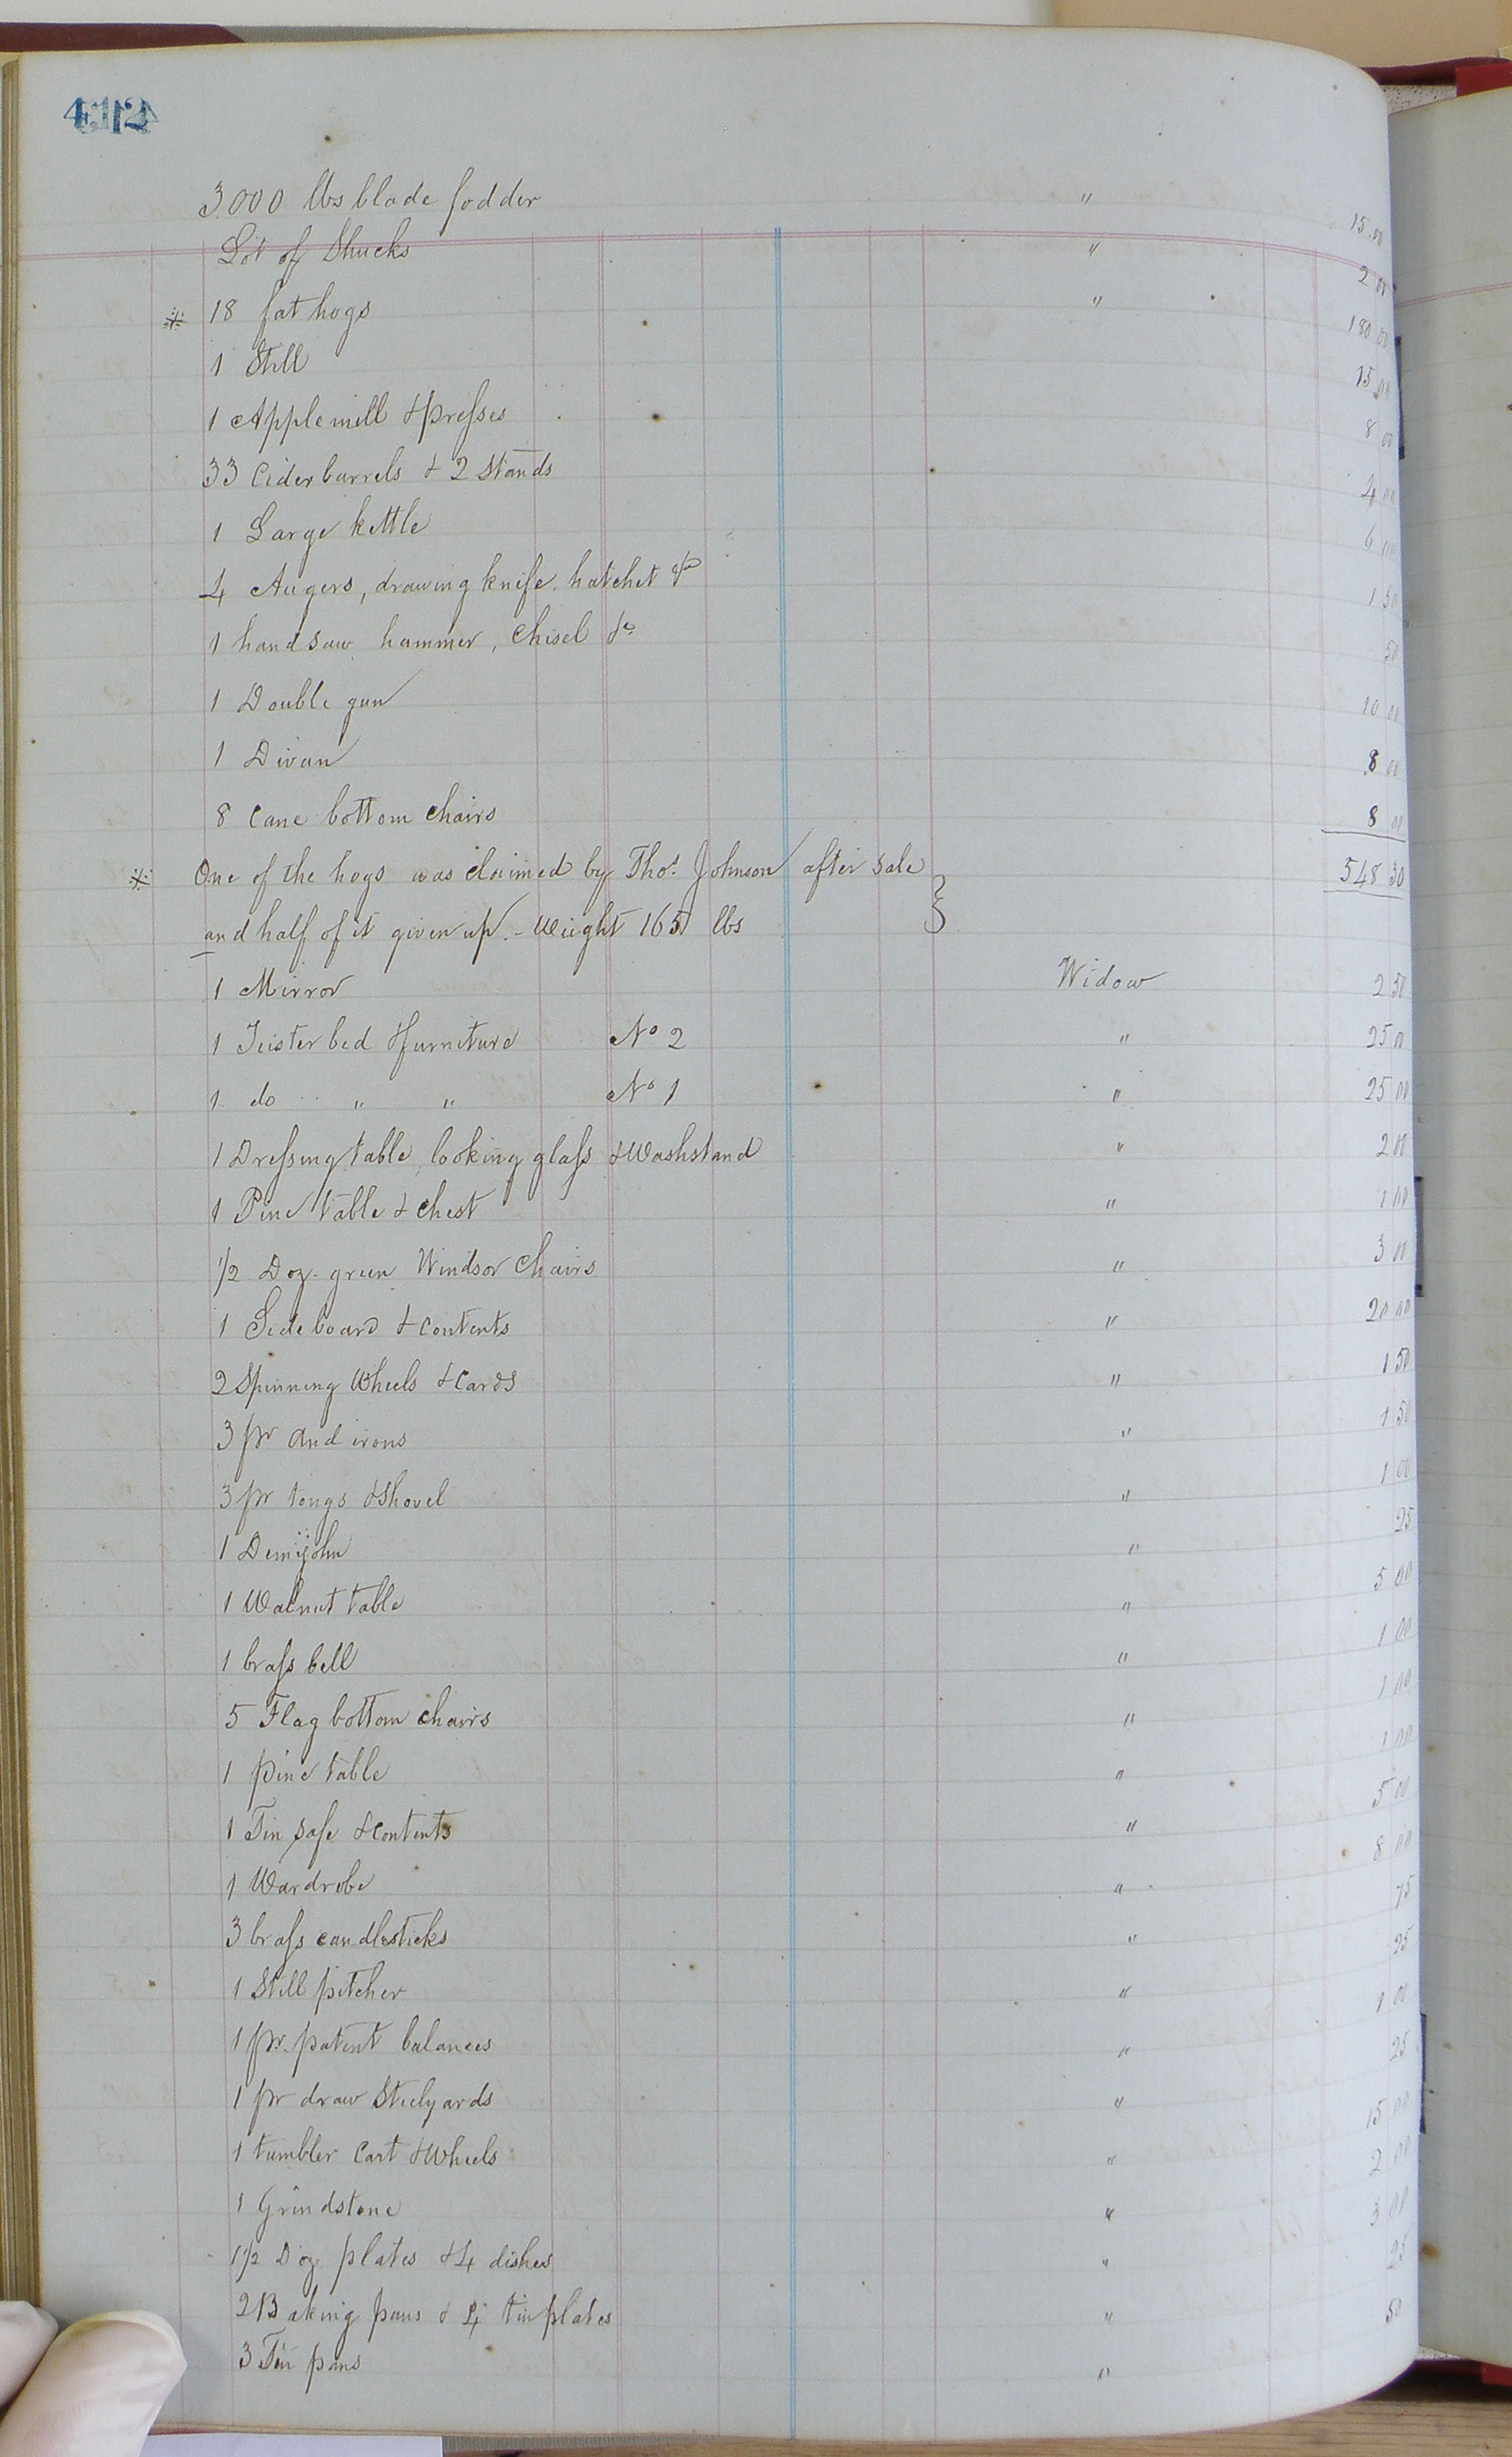 412
3.000 lbs blade fodder " 15.00
Lot of Shucks " 2 00
* 18 fat hogs " 180 00
1 Still 15 00
1 Apple mill & presses 8 00
33 Cider barrels & 2 Stands 4 00
1 Large kettle 6 00
4 Augers, drawing knife. hatchet &c 1 50
1 hand saw hammer, Chisel &c 50
1 Double gun 10 00
1 Divan 8 00
8 Cane bottom Chairs 8 00
* One of the hogs was claimed by Thos. Johnson after sale 548 30
and half of it given up. - Weight 165 lbs
1 Mirror Widow 2 50
1 Teister bed & furniture No 2 " 25 00
1 do " " No 1 " 25 00
1 Dressing table, looking glass & Washstand " 2 00
1 Pine table & Chest " 1 00
1/2 Doz. green Windsor Chairs " 3 00
1 Sideboard & Contents " 20 00
2 Spinning Wheels & Cards " 1 50
3 pr And irons " 1 50
3 pr tongs & Shovel " 1 00
1 Demijohn " 25
1 Walnut table " 5 00
1 brass bell " 1 00
5 Flag bottom chairs " 1 00
1 pine table " 1 00
1 Tin safe & Contents " 5 00
1 Wardrobe " 8 00
3 brass candlesticks " 75
1 Still pitcher " 25
1 pr. patent balances " 1 00
1 pr draw Steelyards " 25
1 tumbler Cart & Wheels " 15 00
1 Grindstone " 2 00
1 1/2 Doz. plates & 4 dishes " 3 00
2 Baking pans & 4 tin plates " 25
3 Tin pans " 50